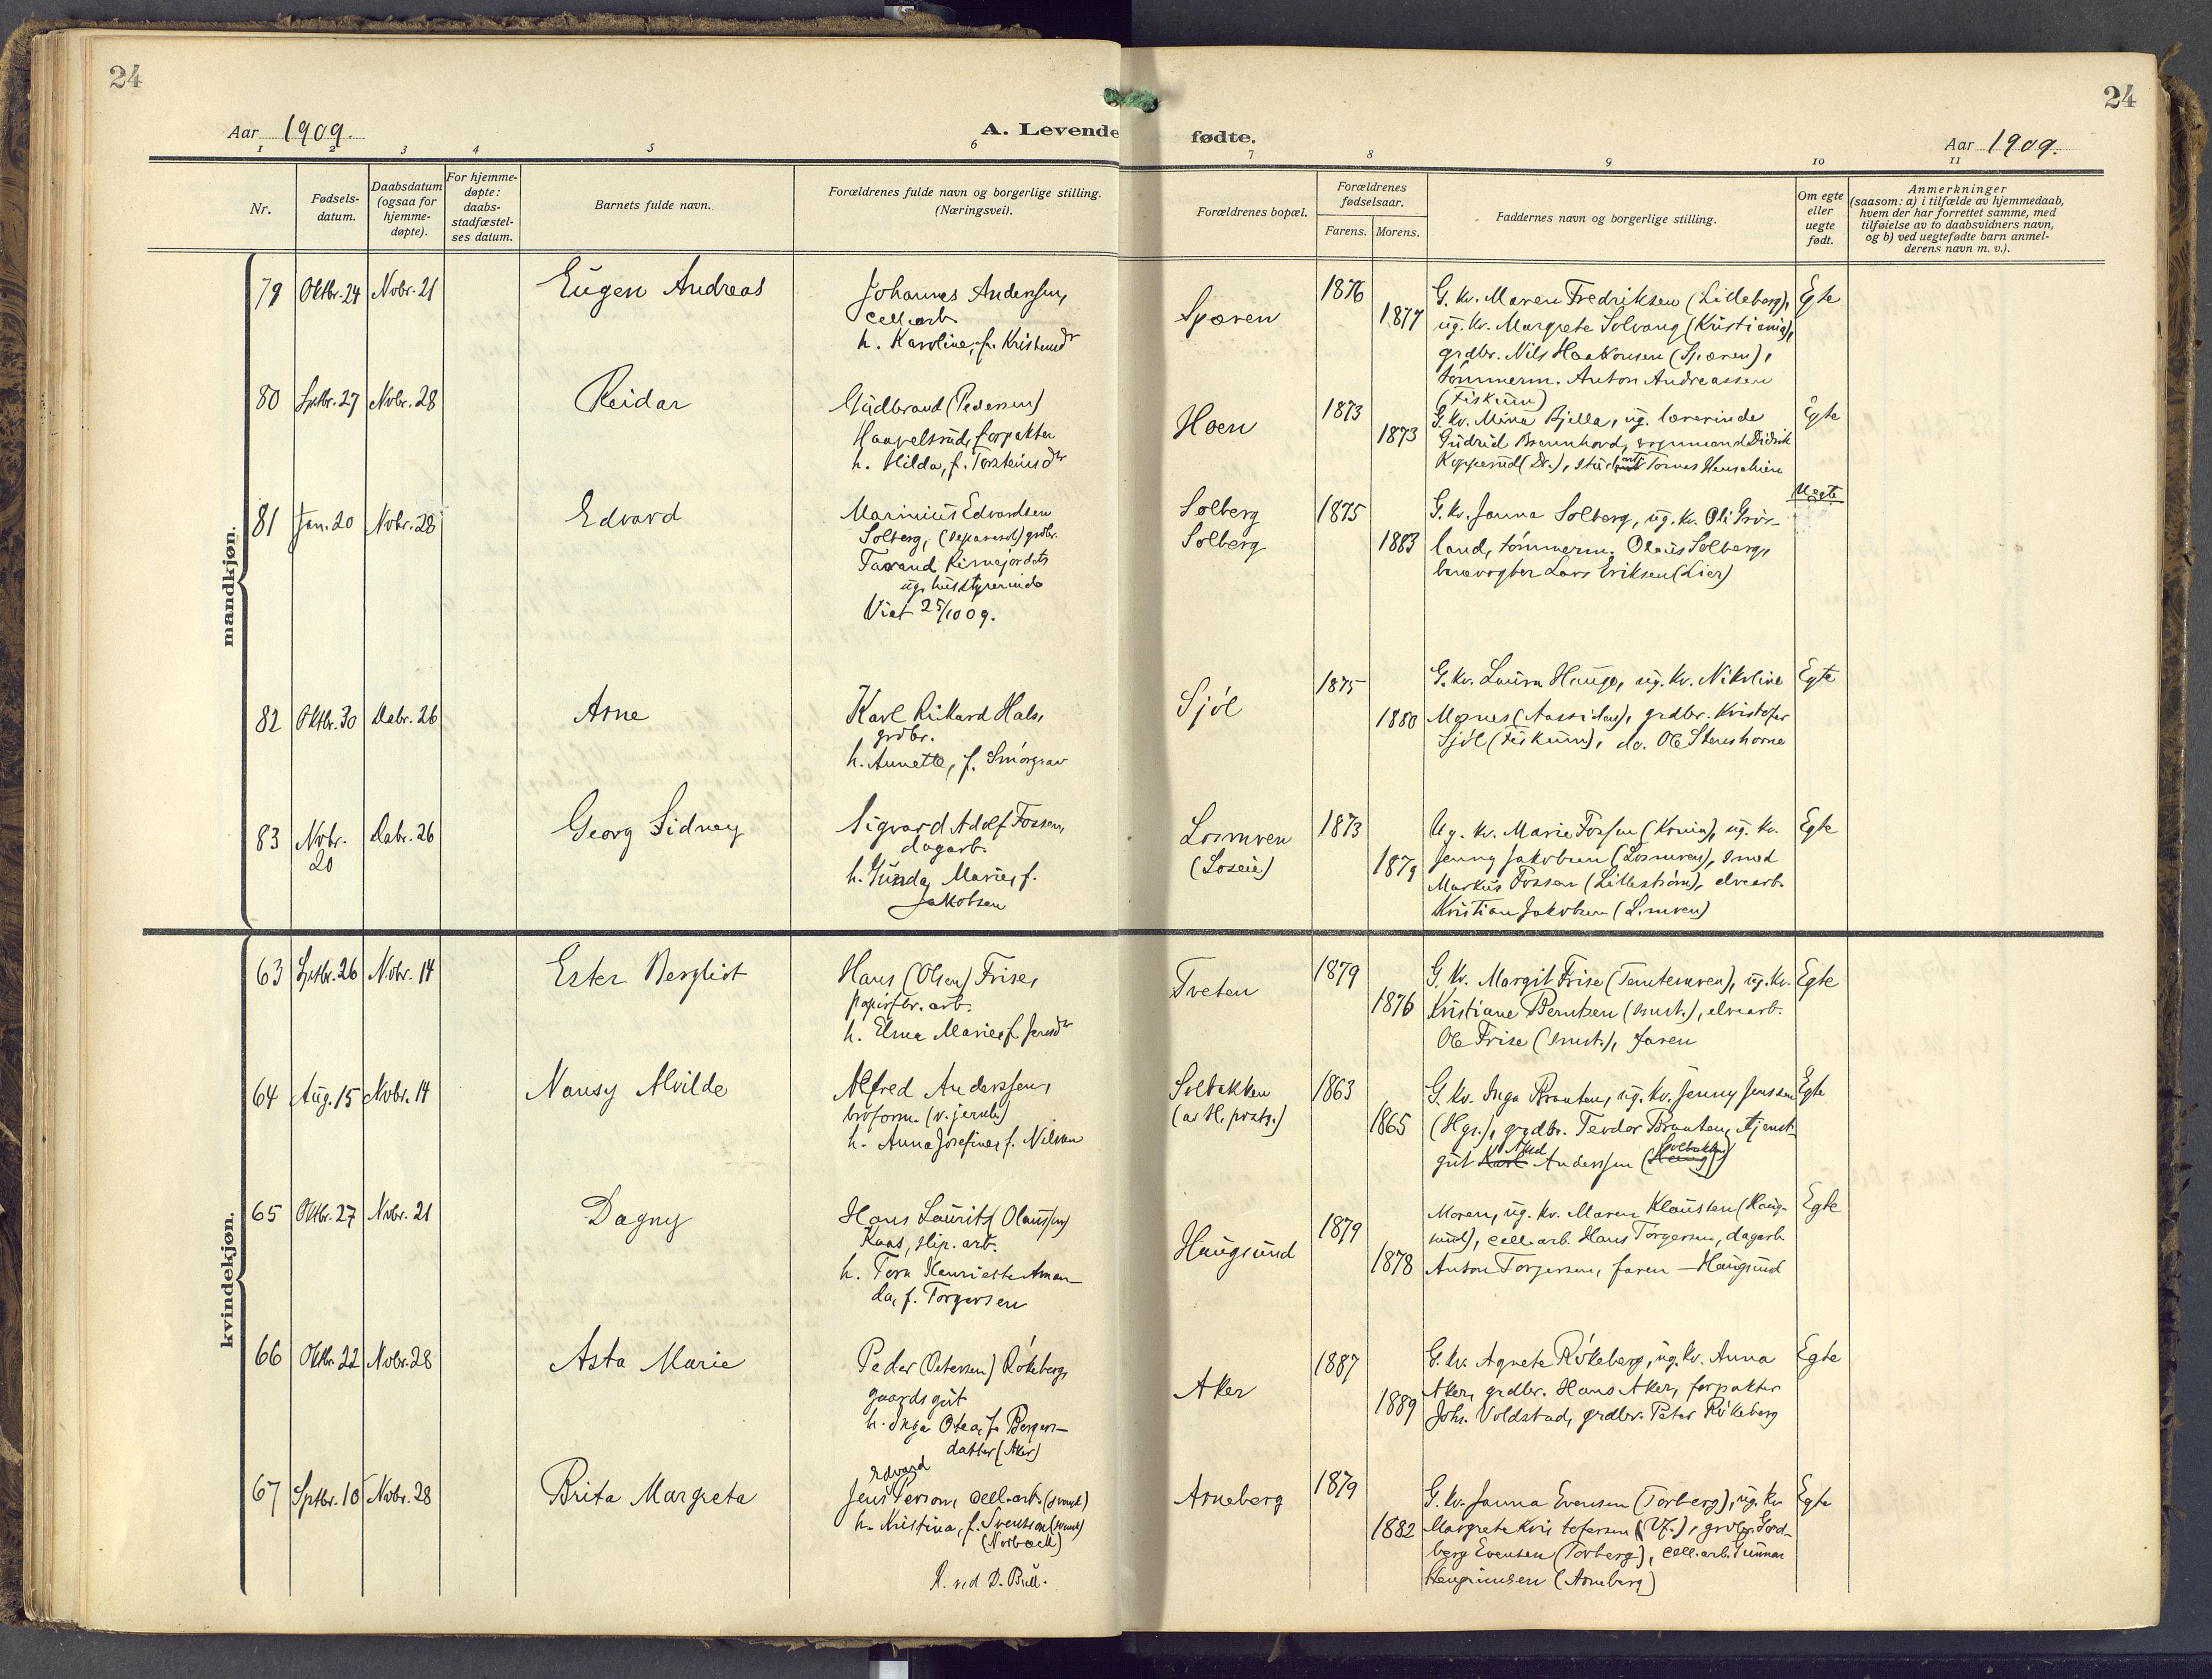 24
24
Aar 1909.
A. Levende fødte.
Aar 1909.
1 2 3 4 5 6 7 8 9 10 11
Nr.
Fødsels-
datum.
Daabsdatum
(ogsaa for
hjemme-
døpte).
For hjemme-
døpte:
daabs-
stadfæstel-
ses datum.
Barnets fulde navn.
Forældrenes fulde navn og borgerlige stilling.
(Næringsvei).
Forældrenes bopæl.
Forældrenes
fødselsaar.
Farens. Morens.
Faddernes navn og borgerlige stilling.
Om egte
eller
uegte
født.
Anmerkninger
(saasom: a) i tilfælde av hjemmedaab,
hvem der har forrettet samme, med
tilføielse av to daabsvidners navn,
og b) ved uegtefødte barn anmel-
derens navn m. v.).
mandkjøn.
79 Oktbr. 24 Novbr. 21
Eugen Andreas
Johannes Anderssen,
cell.arb.
h. Karoline, f. Kristensdr
Spæren
1876
1877
G. kv. Maren Fredriksen (Lilleberg),
ug. kv. Margrete Solvang (Kristiania),
grdbr. Nils Haakonsen (Spæren),
tømmerm. Anton Andreassen
(Fiskum)
Egte
80 Septbr. 27 Novbr. 28
Reidar
Gudbrand (Pedersen)
Haavelsrud, forpakter
h. Hilda, f. Torsteinsdr
Hoen
1873
1873
G. kv. Mina Bjella, ug. lærerinde
Gudrid
Kopperud (Dr.), Tomas
Egte
81 Jan. 20 Novbr. 28
Edvard
Marinius Edvardsen
Solberg, grdbr.
Taarand
ug. husstyrerinde
Viet 25/10 09.
Solberg
Solberg
1875
1883
G. kv. Janna Solberg, ug. kv.
land, tømmerm. Olaus Solberg,
Lars Eriksen (Lier)
Uegte
82 Oktbr. 30 Debr. 26
Arne
Karl Rikard Hals,
grdbr.
h. Annette, f. Smørgrav
Sjøl
1875
1880
G. kv. Laura Hauge, ug. kv. Nikoline
Mornes (Aassiden), grdbr. Kristofer
Sjøl (Fiskum), do. Ole Stenshorne
Egte
83 Novbr. 20 Debr. 26
Georg Sidney
Sigvard Adolf Fossen,
dagarb.
h. Gunda Marie, f.
Jakobsen
Losmoen
(Loseie)
1873
1879
Ug. kv. Marie Fossen, ug. kv.
Jenny Jakobsen (Losmoen), smed
Markus Fossen (Lillestrøm), elvearb.
Kristian Jakobsen
Egte
kvindekjøn.
63 Septbr. 26 Novbr. 14
Ester Bergliot
Hans (Olsen) Frise,
papirfbr. arb.
h. Elma Marie, f. Jensdr
Tveten
1879
1876
G. kv. Margit Frise, ug. kv.
Kristiane Berntsen, elvearb.
Ole Frise, faren
Egte
64 Aug. 15 Novbr. 14
Nansy Alvilde
Alfred Anderssen,
broform. (v. jernb.)
h. Anna Josefine, f. Nilsen
Solbakken
(av H. prstg.)
1863
1865
G. kv. Inga Braaten, ug. kv. Jenny Jenssen
(Hgs.), grdbr. Teodor Braaten, tjenst-
gut Karl Anderssen (Solbakken)
Egte
65 Oktbr. 27 Novbr. 21
Dagny
Hans Lauritz (Olaussen)
Kaas, slip. arb.
h. Tora Henriette Aman-
da, f. Torgersen
Haugsund
1879
1878
Moren, ug. kv. Maren Klausten (Haug-
sund), cell.arb. Hans Torgersen, dagarb.
Anton Torgersen, faren - Haugsund
Egte
66 Oktbr. 22 Novbr. 28
Asta Marie
Peder (Petersen) Røkeberg,
gaardsgut
h. Inga Otea, f. Borger-
datter (Aker)
Aker
1887
1889
G. kv. Agnete Røkeberg, ug. kv. Anna
Aker, grdbr. Hans Aker, forpakter
Johs. Voldstad, grdbr. Peter Røkeberg
Egte
67 Sptbr. 10 Novbr. 28
Brita Margreta
Edvard
Jens Person, cell.arb. (svensk)
h. Kristina, f. Svenson (svensk)
(Norbeck)
D. ved D. Bull.
Arneberg
1879
1882
G. kv. Janna Evensen (Torberg), ug. kv
Margrete Kristofersen, grdbr.
berg Evensen (Torberg), cell.arb. Gunnar
(Arneberg)
Egte